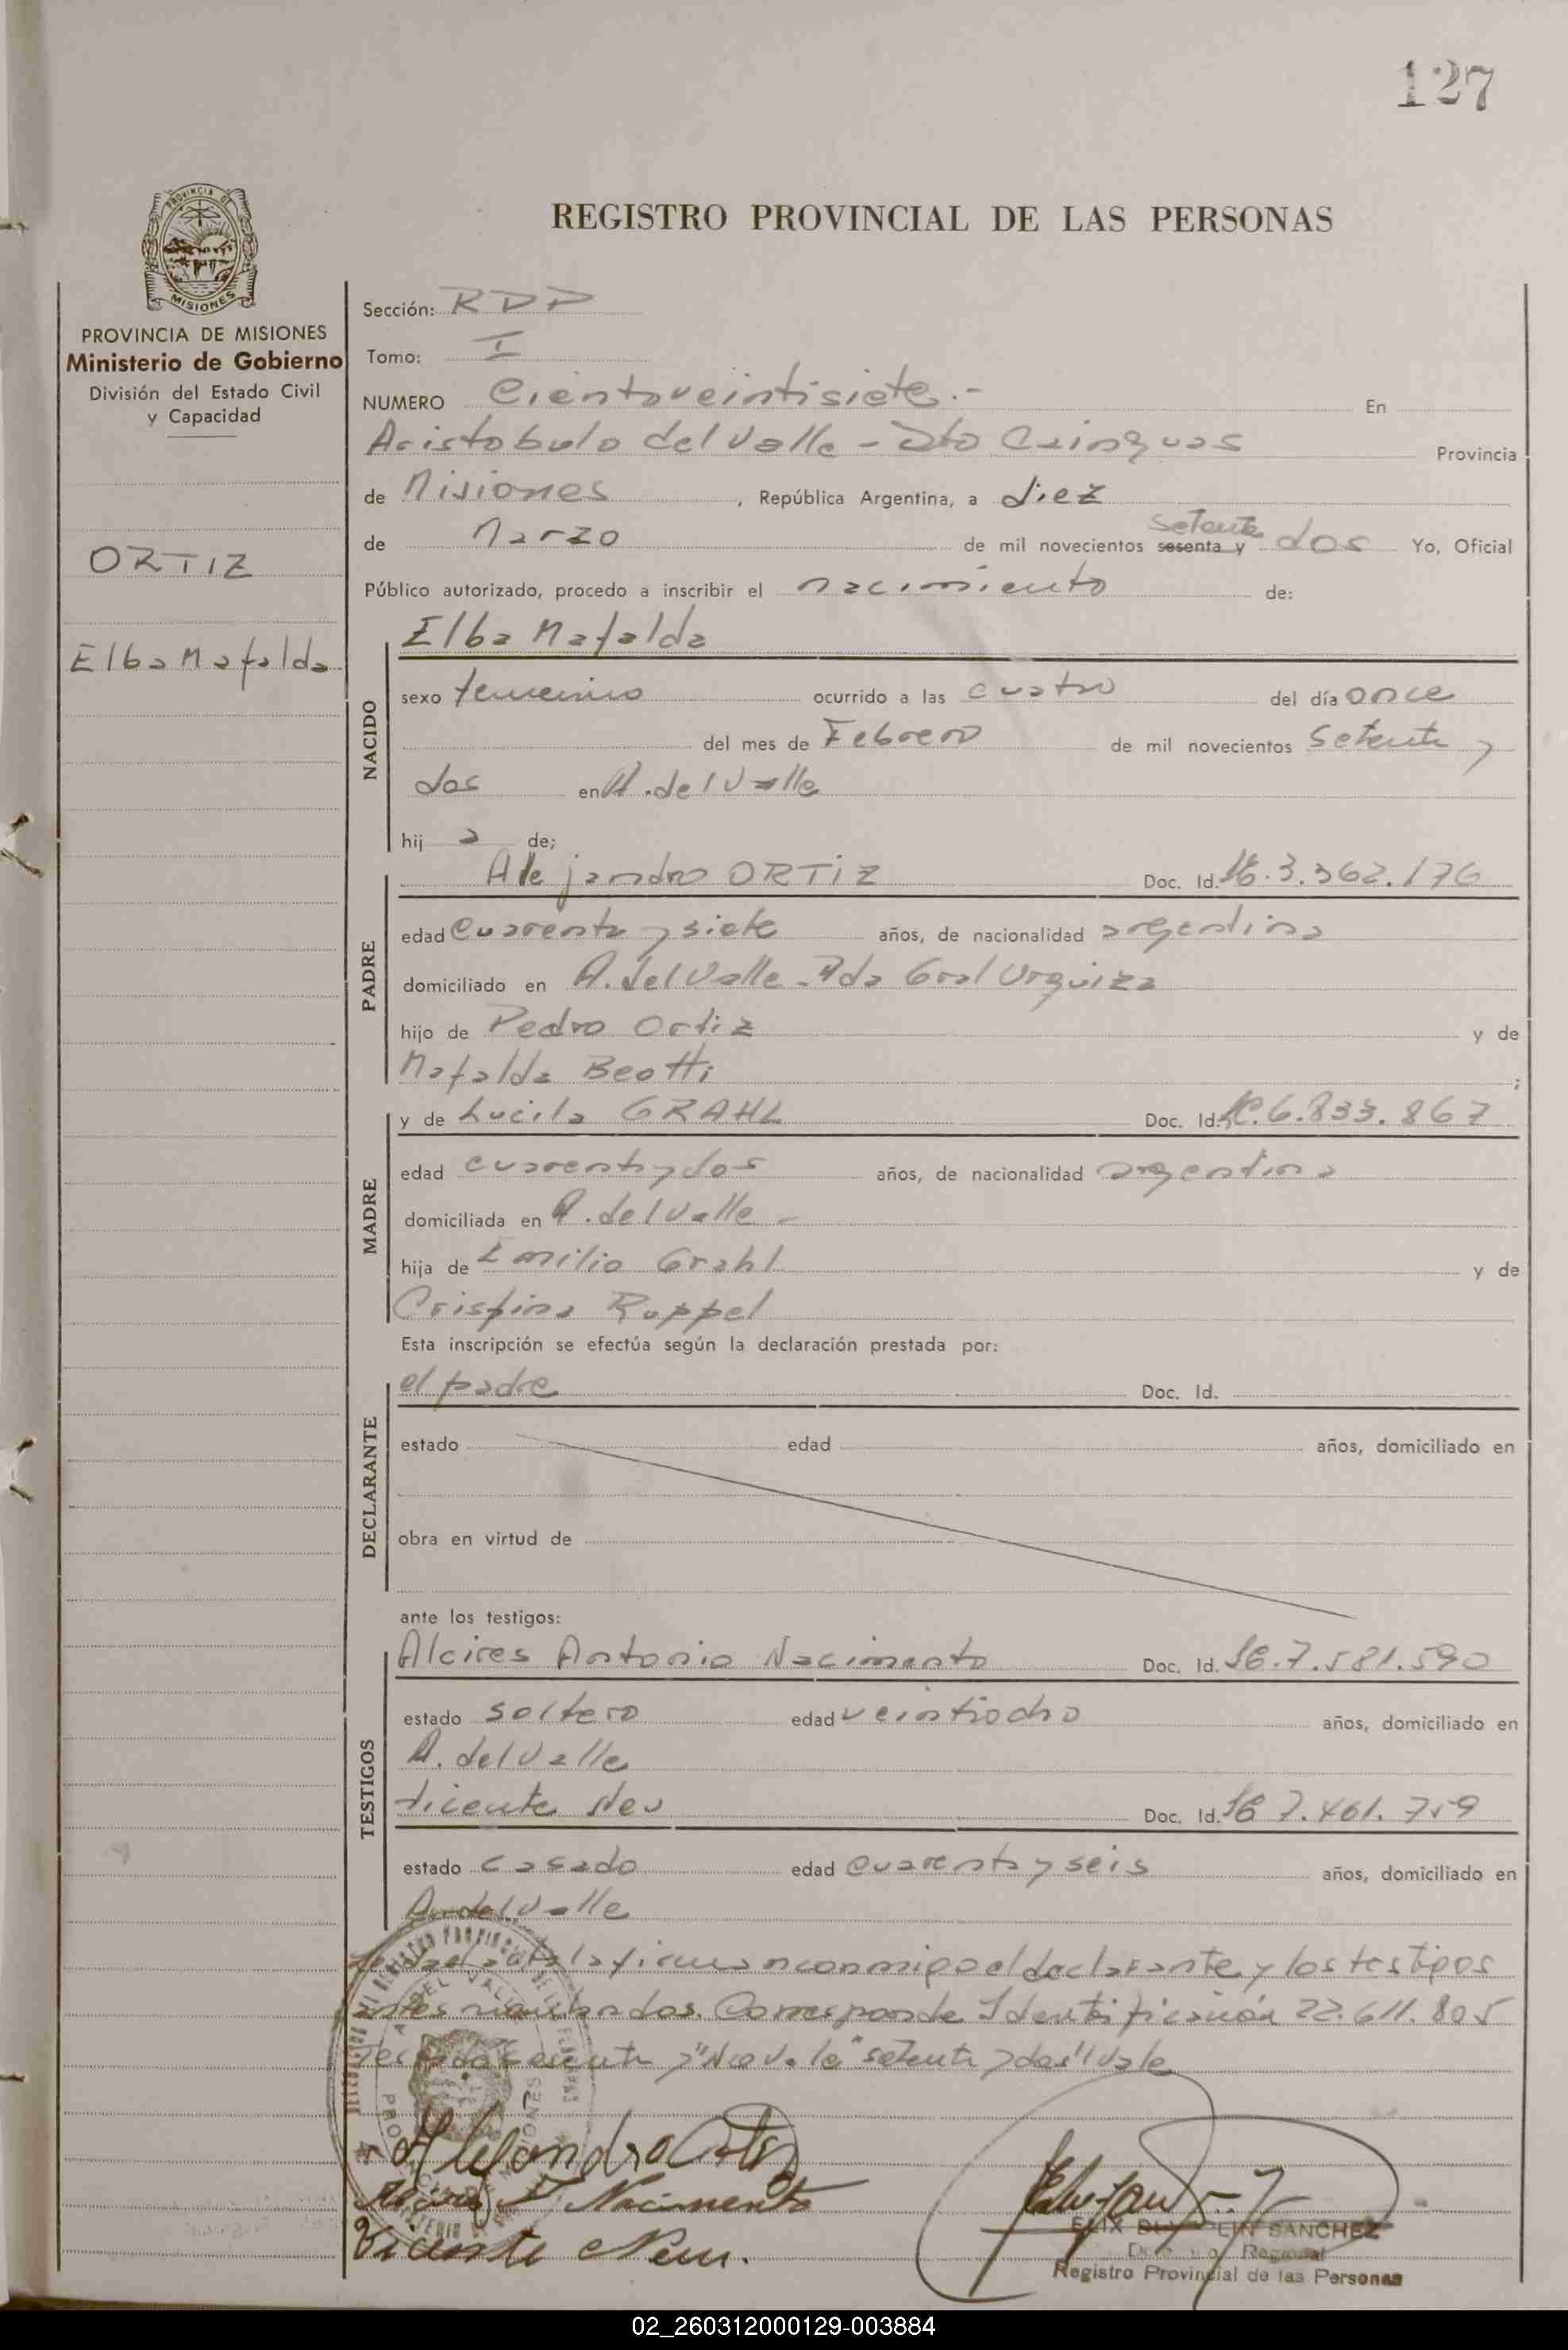 127
REGISTRO PROVINCIAL DE LAS PERSONAS
PROVINCIA DE
MISIONES
PROVINCIA DE MISIONES
Ministerio de Gobierno
División del Estado Civil
y Capacidad
ORTIZ
Elba Mafalda
Sección: RDP
Tomo: I
NUMERO Cientoveintisiete.- En
Aristobulo del Valle - Dto Cainguas Provincia
de Misiones, República Argentina, a diez
de Marzo de mil novecientos sesenta y setenta dos Yo, Oficial
Público autorizado, procedo a inscribir el nacimiento de:
NACIDO
Elba Mafalda
sexo femenino ocurrido a las cuatro del día once
del mes de Febrero de mil novecientos setenta y
dos en A. del Valle
hij a de;
PADRE
Alejandro ORTIZ Doc. Id. 3.362.176
edad cuarenta y siete años, de nacionalidad argentina
domiciliado en A. del Valle - Gral Urquiza
hijo de Pedro Ortiz y de
Mafalda Beotti;
MADRE
y de Lucila GRAHL Doc. Id. 6.833.867
edad cuarenta y dos años, de nacionalidad argentina
domiciliada en A. del Valle -
hija de Emilio Grahl y de
Crispina Ruppel
Esta inscripción se efectúa según la declaración prestada por:
DECLARANTE
el padre Doc. Id.
estado edad años, domiciliado en
obra en virtud de
ante los testigos:
TESTIGOS
Alcires Antonio Nacimento Doc. Id. 7.581.590
estado soltero edad veintiocho años, domiciliado en
A. del Valle
Vicente Neu Doc. Id. 7.461.759
estado casado edad cuarenta y seis años, domiciliado en
A. del Valle
la firman conmigo el declarante y los testigos
antes nombrados. Corresponde Identificación 22.611.805
"No vale "setenta y dos" Vale
Alejandro Ortiz
Nacimento
Vicente Neu.
SANCHEZ
Registro Provincial de las Personas
02_260312000129-003884